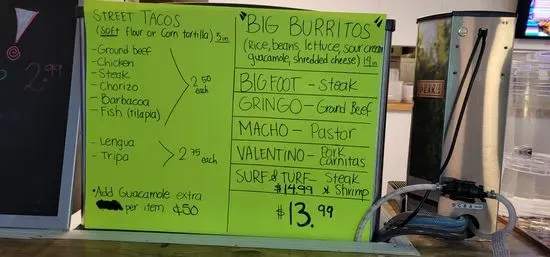 2.99
STREET TACOS
(SOFT flour or Corn tortilla) 5in
- Ground beef
- Chicken
- Steak
- Chorizo
- Barbacoa
- Fish (tilapia)
2.50
each
- Lengua
- Tripa
2.75 each
• Add Guacamole extra
per item $.50
"BIG BURRITOS"
(Rice, beans, lettuce, sour cream
guacamole, shredded cheese) 14in
BIGFOOT - Steak
GRINGO - Ground Beef
MACHO - Pastor
VALENTINO - Pork
Carnitas
SURF & TURF - Steak
$14.99 & Shrimp
$13.99